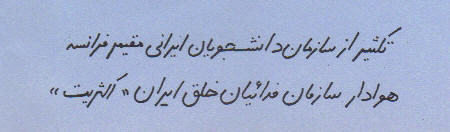 تکثیر از سازمان دانشجویان ایرانی مقیم فرانسه
هوادار سازمان فدائیان خلق ایران «اکثریت»